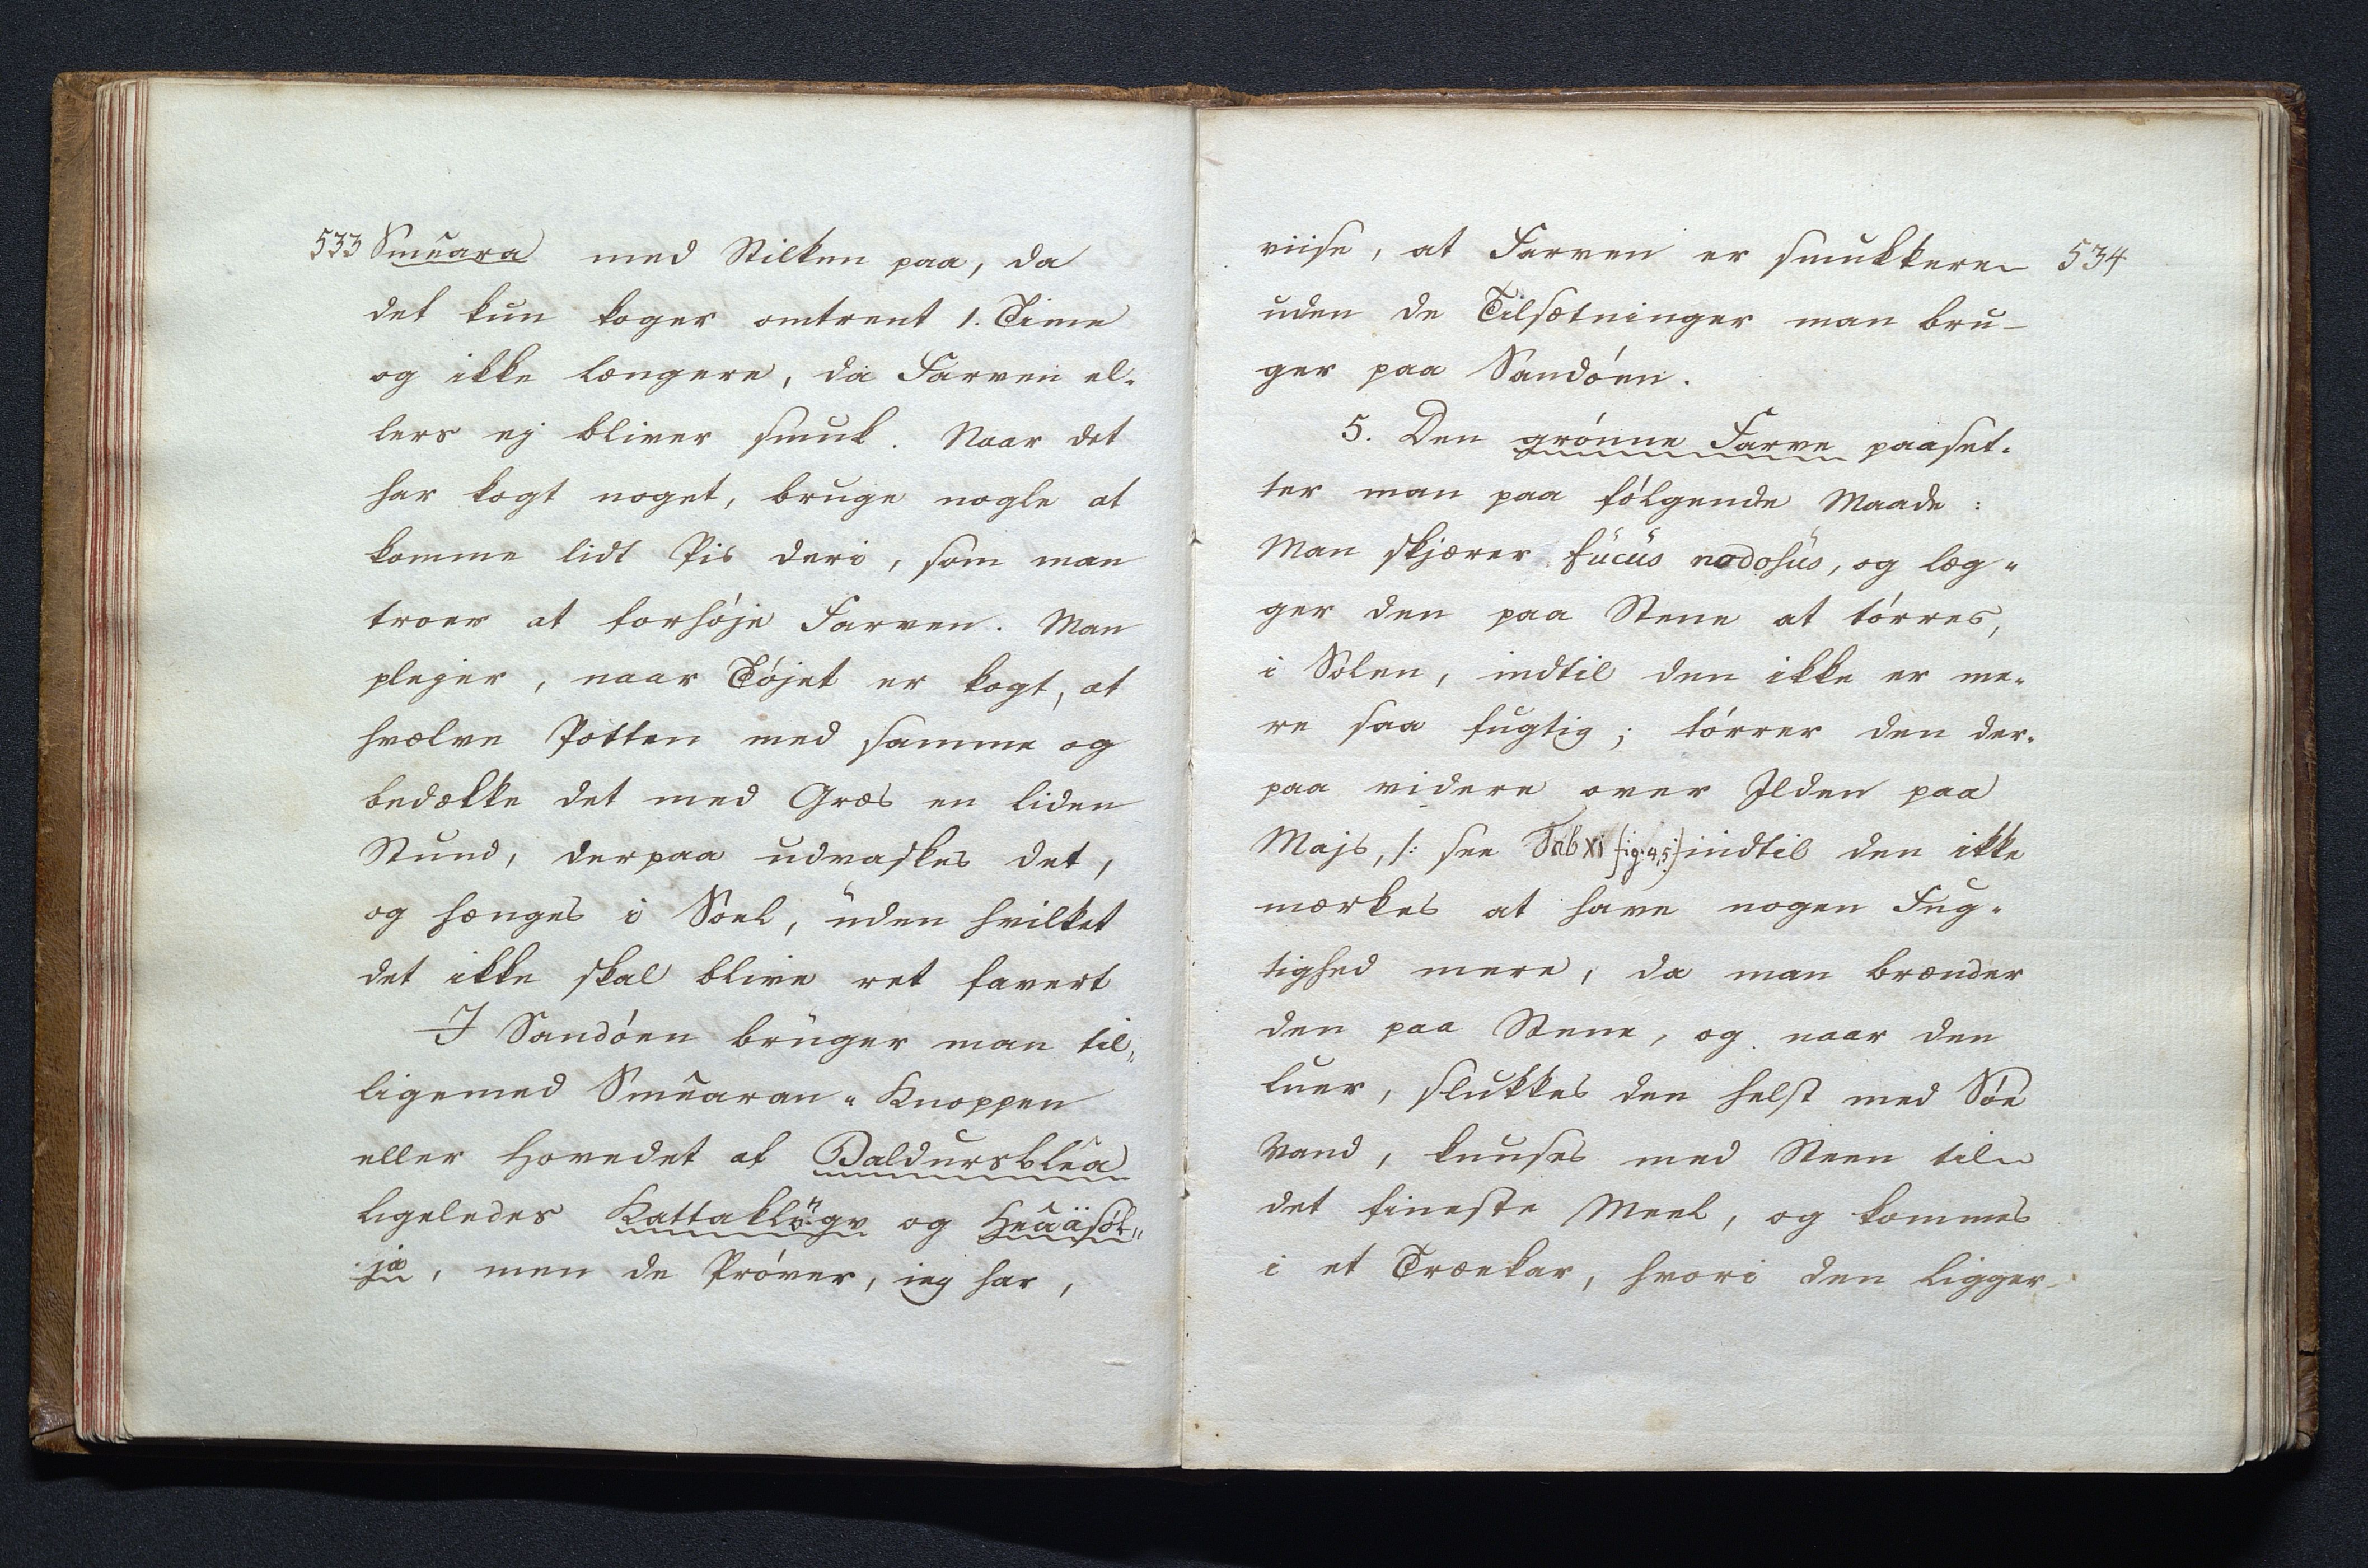 533 Smûara med Stilken paa, da
det kun koger omtrent 1. Time
og ikke længere, da Farven el-
lers ej bliver smuk. Naar det
har kogt noget, bruge nogle at
komme lidt Pis deri, som man
troer at forhøje Farven. Man
plejer, naar Tøjet er kogt, at
hvælve Potten med samme og
bedække det med Græs en liden
Stund, derpaa udvaskes det,
og hænges i Soel, uden hvilket
det ikke skal blive ret favert
I Sandøen bruger man til-
ligemed Smûaran-Knoppen
eller Hovedet af Baldursblêa
ligeledes Kattaklögv og Heûäsól-
ja, men de Prøver, ieg har,
viise, at Farven er smukkere 534
uden de Tilsætninger man bru-
ger paa Sandøen.
5. Den grønne Farve paaset-
ter man paa følgende Maade:
Man skjærer fucus nodosus, og læg-
ger den paa Stene at tørres,
i Solen, indtil den ikke er me-
re saa fugtig; tørrer den der-
paa videre over Ilden paa
Majs, /: see Tab XI fig: 4,5:/ indtil den ikke
mærkes at have nogen Fug-
tighed mere, da man brænder
den paa Stene, og naar den
luer, slukkes den helst med Søe
Vand, knuses med Steen til
det fineste Meel, og kommes
i et Træekar, hvori den ligger